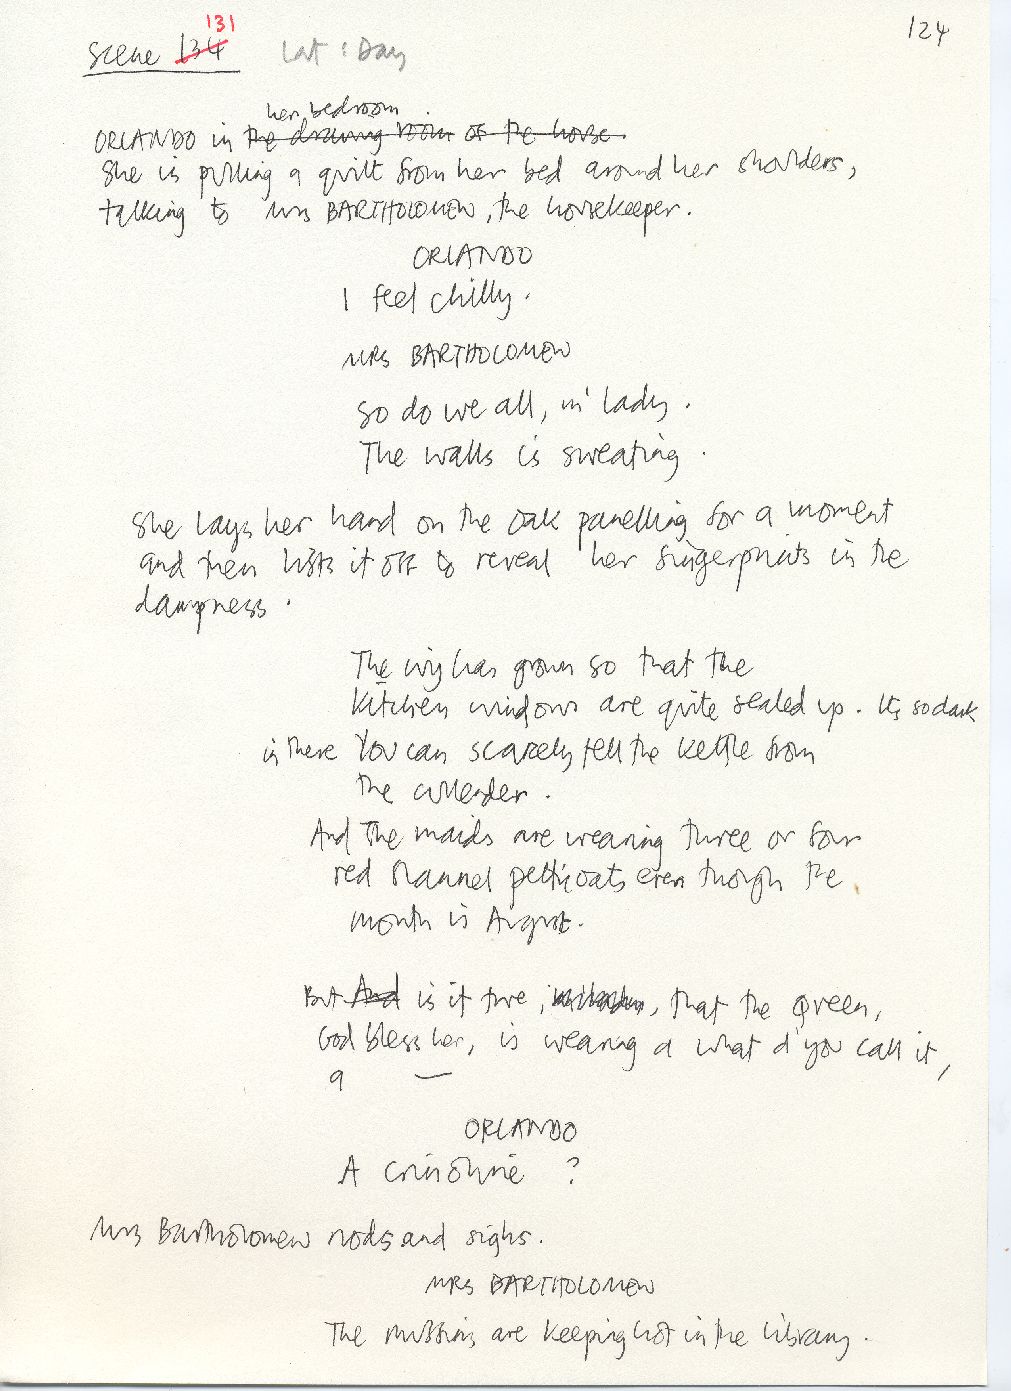 124
131
Scene 134 Int : Day
her bedroom
ORLANDO in the drawing room of the house.
She is pulling a quilt from her bed around her shoulders,
talking to Mrs BARTHOLOMEW, the housekeeper.
ORLANDO
I feel chilly.
MRS BARTHOLOMEW
So do we all, m' lady.
The walls is sweating.
She lays her hand on the oak panelling for a moment
and then lifts it off to reveal her fingerprints in the
dampness.
The ivy has grown so that the
kitchen windows are quite sealed up. Its so dark
in there You can scarcely tell the kettle from
the cullender.
And The maids are wearing three or four
red flannel petticoats even though the
month is August.
But And is it true, , that the Queen,
God bless her, is wearing a what d'you call it,
a —
ORLANDO
A crinoline ?
Mrs Bartholomew nods and sighs.
MRS BARTHOLOMEW
The muffins are keeping hot in the library.